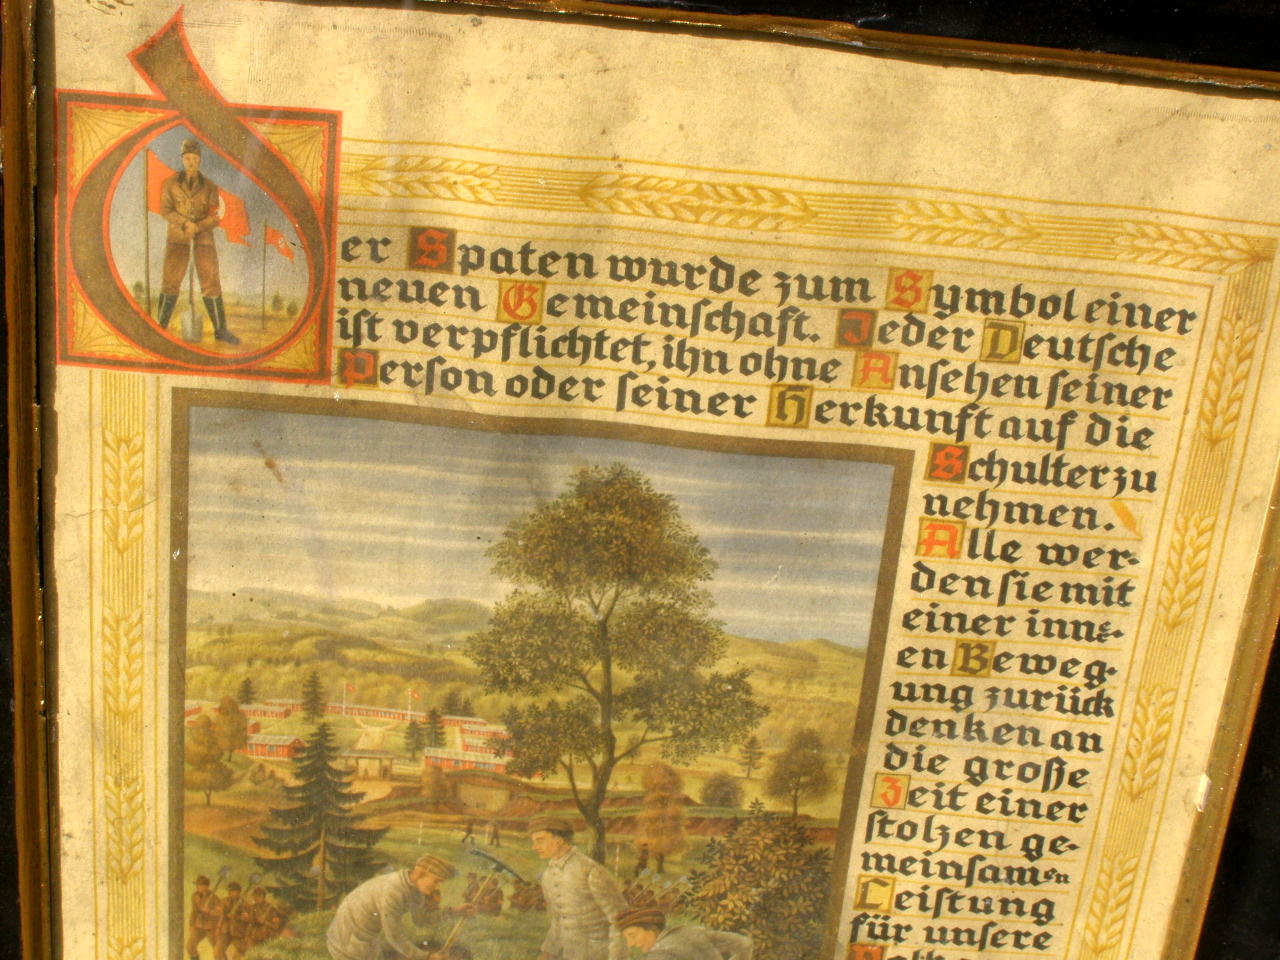 Der Spaten wurde zum Symbol einer
neuen Gemeinschaft. Jeder Deutsche
ist verpflichtet, ihn ohne Ansehen seiner
Person oder seiner Herkunft auf die
Schulter zu
nehmen.
Alle wer-
den sie mit
einer inner-
en Beweg-
ung zurück
denken an
die große
Zeit einer
stolzen ge-
meinsamen
Leistung
für unsere